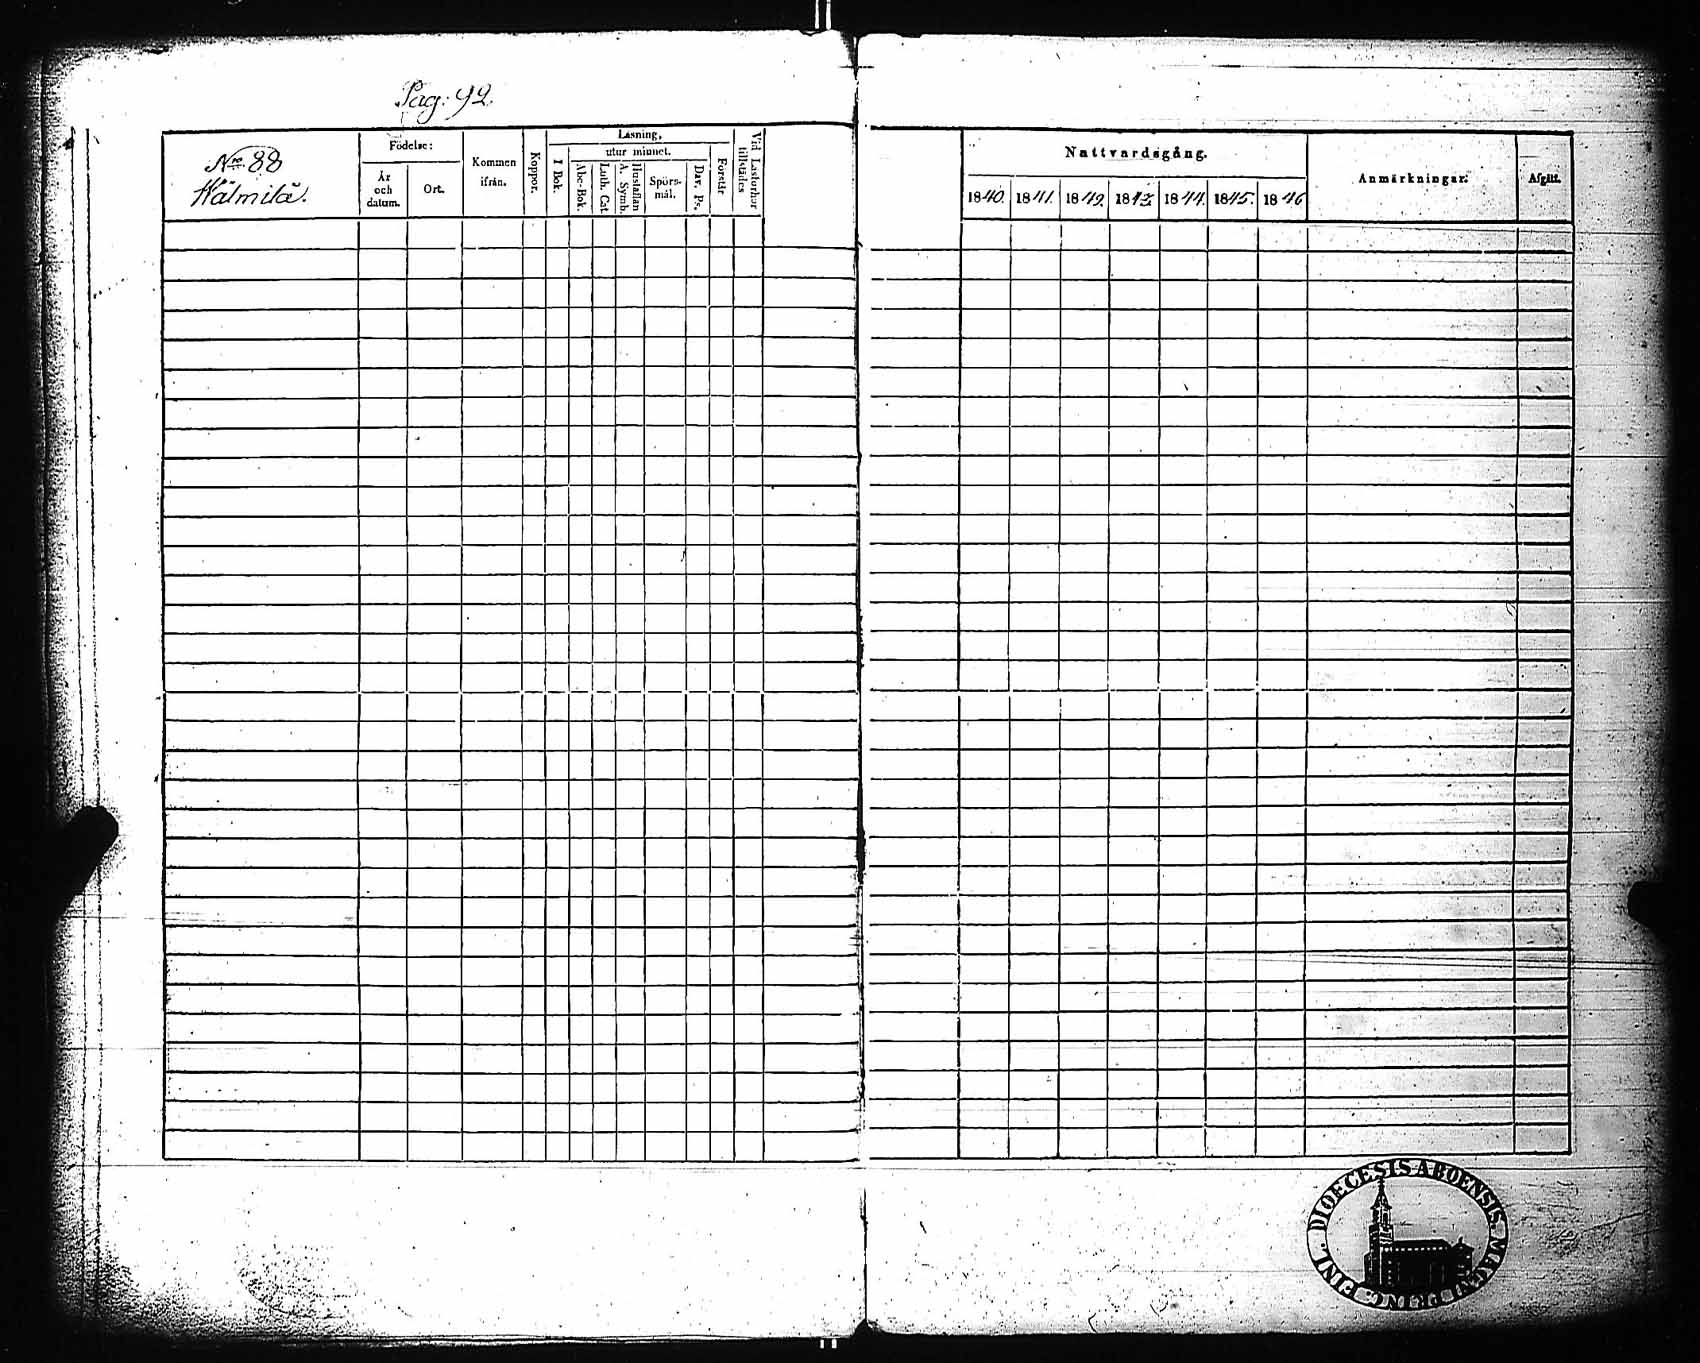 Pag: 92.
Nro 88
Wälmilä.
Födelse:
År och datum.
Ort.
Kommen ifrån.
Koppor.
Läsning,
I Bok.
utur minnet.
Abc-Bok.
Luth. Cat.
Hustaflan A. Symb.
Spörsmål.
Dav. Ps.
Förstår
Vid Läsförhör tillstädes
Nattvardsgång.
1840. 1841. 1842. 1843. 1844. 1845. 1846
Anmärkningar:
Afgått.
DIOECESIS ABOENSIS. MAGNI PRINC. FINL.